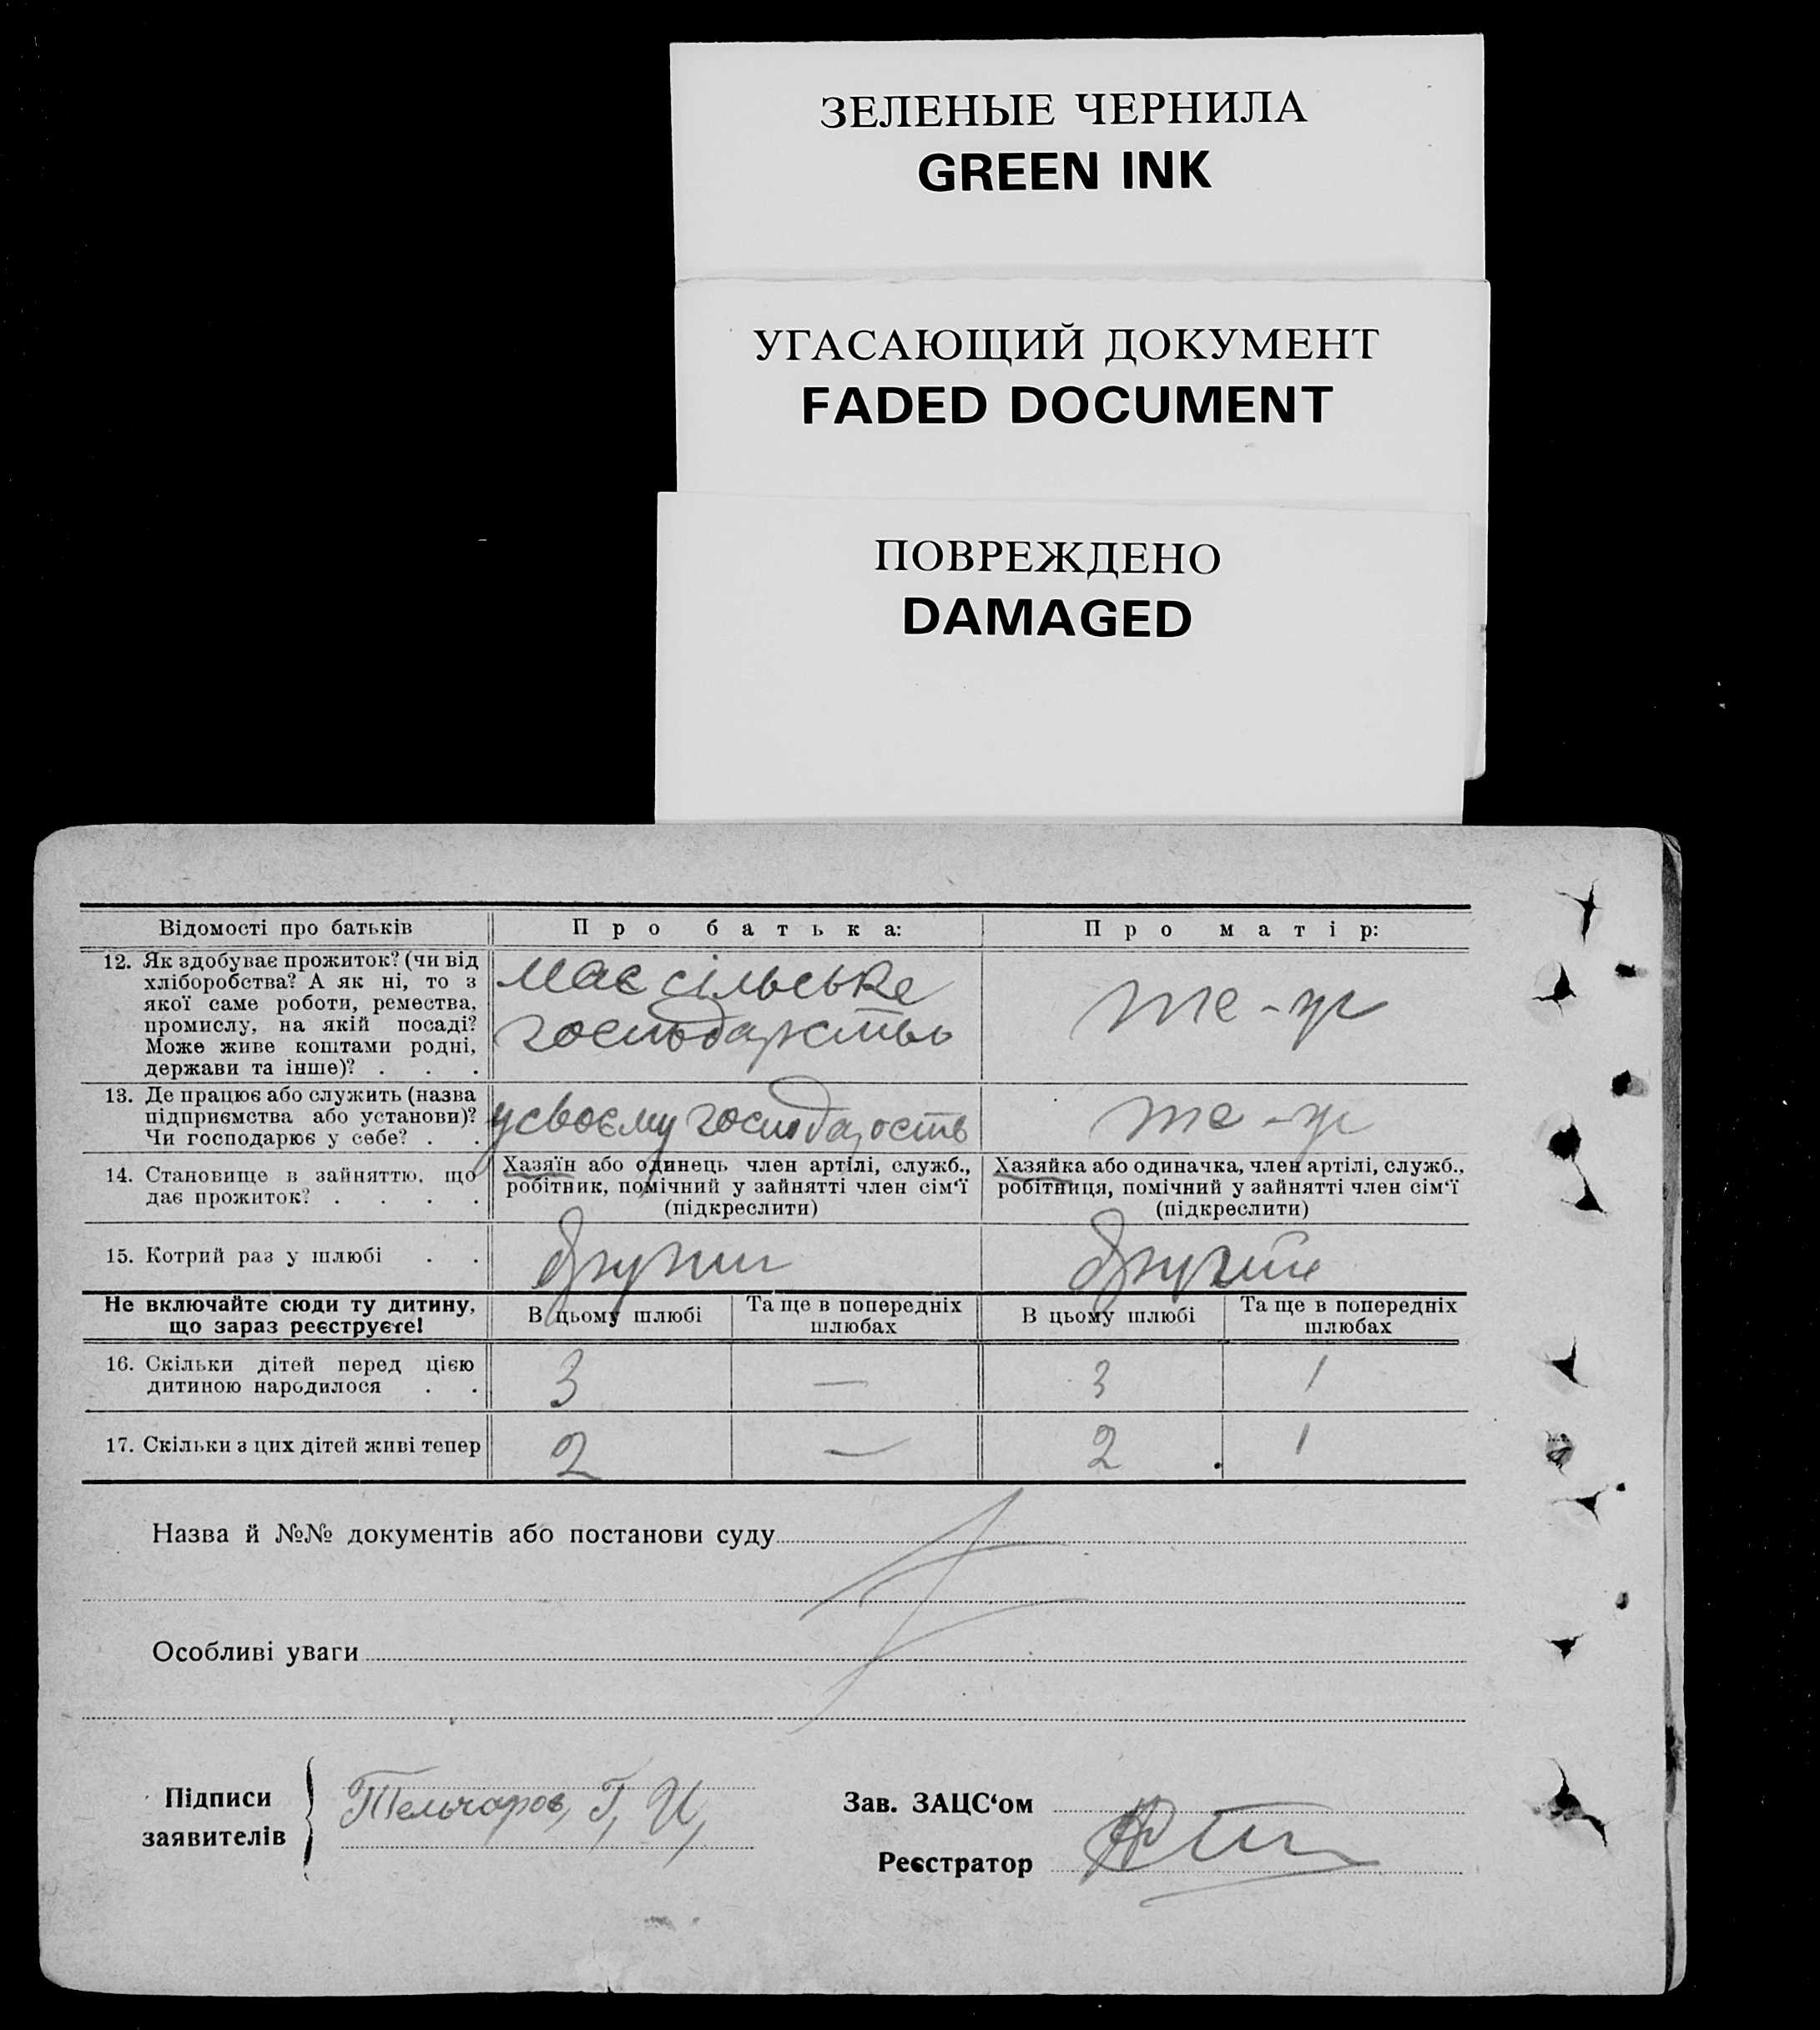 ЗЕЛЕНЫЕ ЧЕРНИЛА
GREEN INK
УГАСАЮЩИЙ ДОКУМЕНТ
FADED DOCUMENT
ПОВРЕЖДЕНО
DAMAGED
Відомості про батьків Про батька: Про матір:
12. Як здобуває прожиток? (чи від
хліборобства? А як ні, то з
якої саме роботи, ремества,
промислу, на якій посаді?
Може живе коштами родні,
держави та інше)? . . .
має сільське
господарство
те-ж
13. Де працює або служить (назва
підприємства або установи)?
Чи господарює у себе? . .
у своєму господарость
те-ж
14. Становище в зайняттю, що
дає прожиток? . . . .
Хазяїн або одинець член артілі, служб.,
робітник, помічний у зайнятті член сім'ї
(підкреслити)
Хазяйка або одиначка, член артілі, служб.,
робітниця, помічний у зайнятті член сім'ї
(підкреслити)
15. Котрий раз у шлюбі . .
Не включайте сюди ту дитину,
що зараз реєструєте!
В цьому шлюбі
Та ще в попередніх
шлюбах
В цьому шлюбі
Та ще в попередніх
шлюбах
16. Скільки дітей перед цією
дитиною народилося . .
3 — 3 1
17. Скільки з цих дітей живі тепер 2 — 2 1
Назва й №№ документів або постанови суду
Особливі уваги
Підписи
заявителів
Тельчаров, Г, И,
Зав. ЗАЦС'ом
Реєстратор